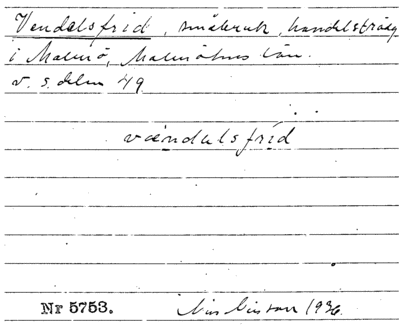 Vendelsfrid, småbruk, handelsträdg
i Malmö, Malmöhus län.
v. s. delen 49
vændelsfrid
Nr 5753. Nils Nilsson 1936.